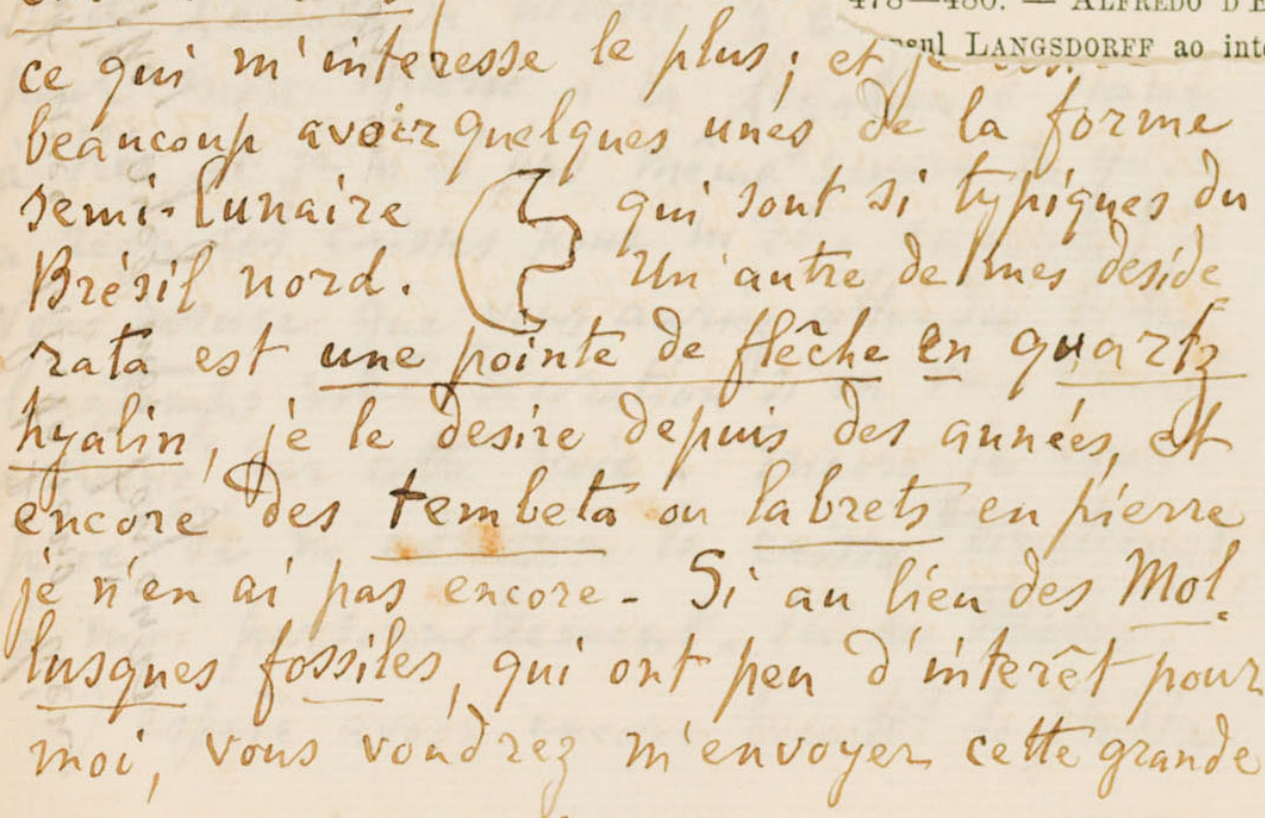 478—480. — ALFREDO D'E
LANGSDORFF ao inte
ce qui m'interesse le plus; et je
beaucoup avoir quelques unes de la forme
semi-lunaire qui sont si typiques du
Brésil nord. Un'autre de mes deside
rata est une pointe de flêche en quartz
hyalin, je le desire depuis des années, et
encore des tembeta ou labrets en pierre
je n'en ai pas encore - Si au lieu des Mol.
lusques fossiles, qui ont peu d'interêt pour
moi, vous voudrez m'envoyer cette grande